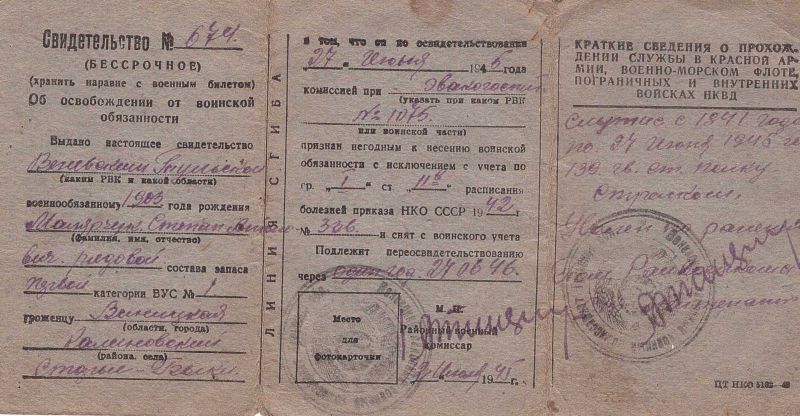 Свидетельство № 674.
(БЕССРОЧНОЕ)
(хранить наравне с военным билетом)
Об освобождении от воинской
обязанности
Выдано настоящее свидетельство
Веневским Тульской
(каким РВК и какой области)
военнообязанному 1903 года рождения
Степан
(фамилия, имя, отчество)
рядовой состава запаса
первой категории ВУС № 1
Винницкая
(области, города)
Калиновский
(района, села)
ЛИНИЯ СГИБА
в том, что он по освидетельствовании
"27" Июня 1945 года
комиссией при Эвакогоспит
(указать при каком РВК
№ 1075
или воинской части)
признан негодным к несению воинской
обязанности с исключением с учета по
гр. I ст 11 расписания
болезней приказа НКО СССР 1942 г.
№ 336. и снят с воинского учета
Подлежит переосвидетельствованию
через 27 06 46.
Место
для
фотокарточки
М. П.
Районный военный
комиссар
Июля 1945г.
КРАТКИЕ СВЕДЕНИЯ О ПРОХОЖ-
ДЕНИИ СЛУЖБЫ В КРАСНОЙ АР-
МИИ, ВОЕННО-МОРСКОМ ФЛОТЕ,
ПОГРАНИЧНЫХ И ВНУТРЕННИХ
ВОЙСКАХ НКВД
с 1941 года
по 27 Июня 1945 г
139 гв. ст. полку
стрелком.
ЦТ НКО